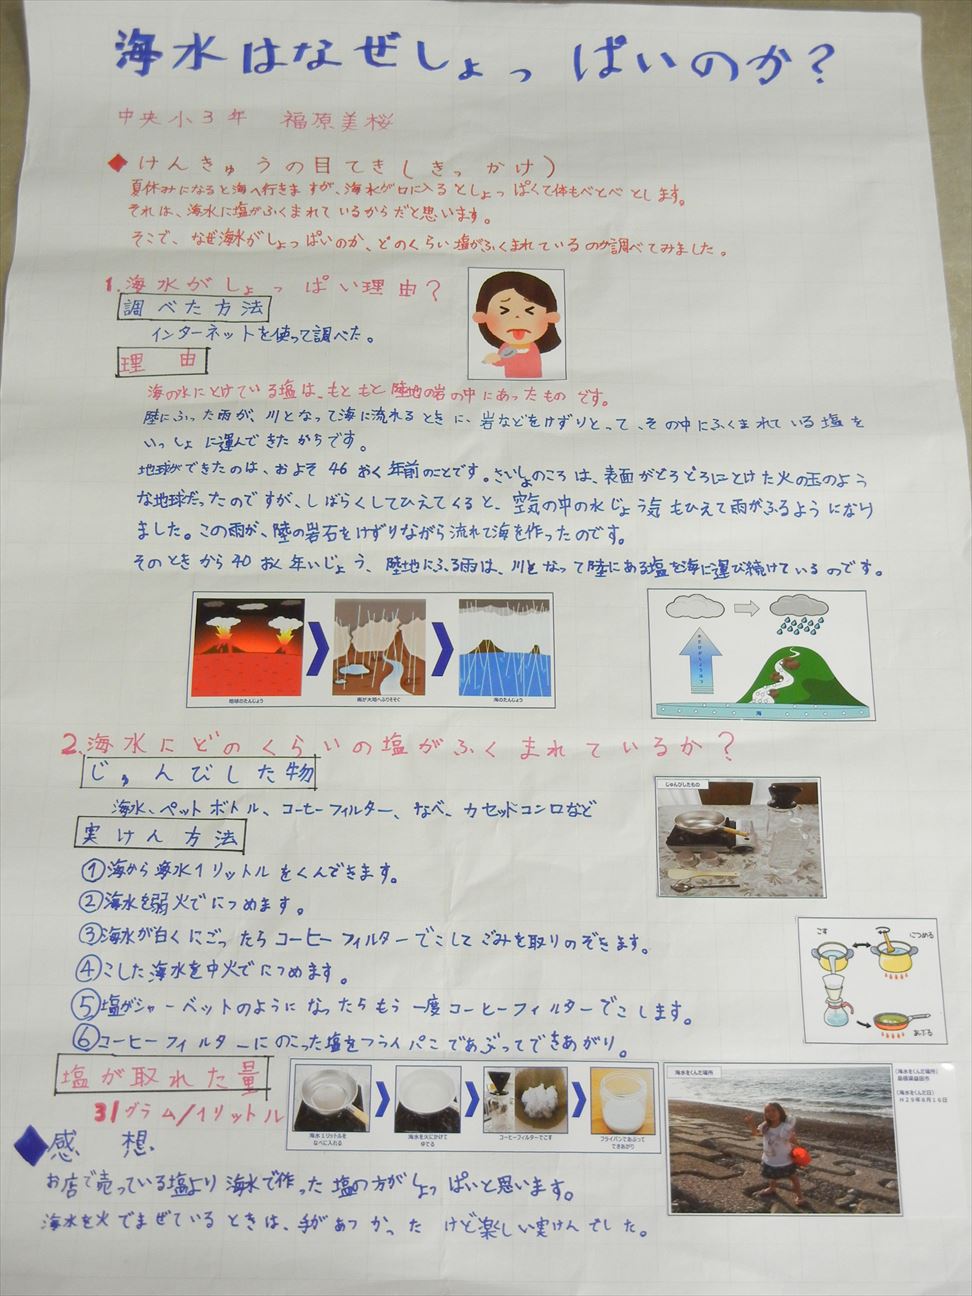 海水はなぜしょっぱいのか?
中央小3年 福原美桜
◆けんきゅうの目てき(きっかけ)
夏休みになると海へ行きますが、海水が口に入るとしょっぱくて体もべとべとします。
それは、海水に塩がふくまれているからだと思います。
そこで、なぜ海水がしょっぱいのか、どのくらい塩がふくまれているのか調べてみました。
1.海水がしょっぱい理由?
調べた方法
インターネットを使って調べた。
理由
海の水にとけている塩は、もともと陸地の岩の中にあったものです。
陸にふった雨が、川となって海に流れるときに、岩などをけずりとって、その中にふくまれている塩を
いっしょに運んできたからです。
地球ができたのは、およそ46おく年前のことです。さいしょのころは、表面がどろどろにとけた火の玉のよう
な地球だったのですが、しばらくしてひえてくると、空気の中の水じょう気もひえて雨がふるようになり
ました。この雨が、陸の岩石をけずりながら流れて海を作ったのです。
そのときから40おく年いじょう、陸地にふる雨は、川となって陸にある塩を海に運び続けているのです。
地球のたんじょう
雨が大地へふりそそぐ
海のたんじょう
海
2.海水にどのくらいの塩がふくまれているか?
じゅんびした物
海水、ペットボトル、コーヒーフィルター、なべ、カセッドコンロなど
じゅんびしたもの
実けん方法
①海から海水1リットルをくんできます。
②海水を弱火でにつめます。
③海水が白くにごったらコーヒーフィルターでこしてごみを取りのぞきます。
④こした海水を中火でにつめます。
⑤塩がシャーベットのようになったらもう一度コーヒーフィルターでこします。
⑥コーヒーフィルターにのこった塩をフライパンであぶってできあがり。
こす
につめる
あぶる
塩が取れた量
31グラム/1リットル
海水1リットルを
なべに入れる
海水を火にかけて
ゆでる
コーヒーフィルターでこす
フライパンであぶって
できあがり
海水をくんだ場所
(海水をくんだ場所)
島根県益田市
(海水をくんだ日)
H29年8月16日
◆感想
お店で売っている塩より海水で作った塩の方がしょっぱいと思います。
海水を火でまぜているときは、手があつかったけど楽しい実けんでした。